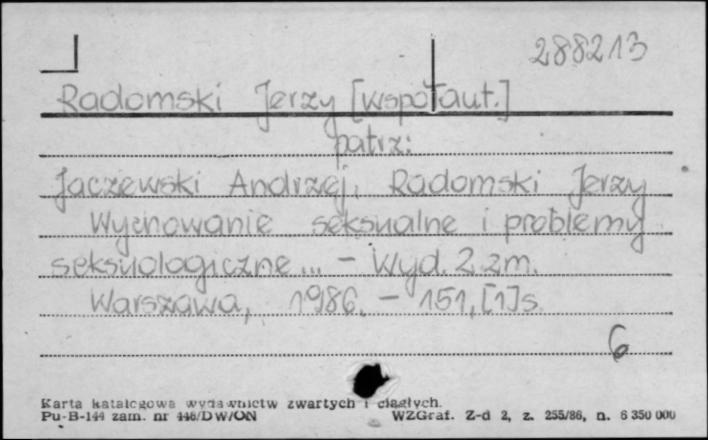 288213
Radomski Jerzy [współaut.]
patrz:
Jaczewski Andrzej, Radomski Jerzy
Wychowanie seksualne i problemy
seksuologiczne... - Wyd. 2 zm.
Warszawa, 1986. - 151, [1] s.
6
Karta katalogowa wydawnictw zwartych i ciągłych.
Pu-B-144 zam. nr 446/DW/ON WZGraf. Z-d 2, z. 255/86, n. 6 350 000